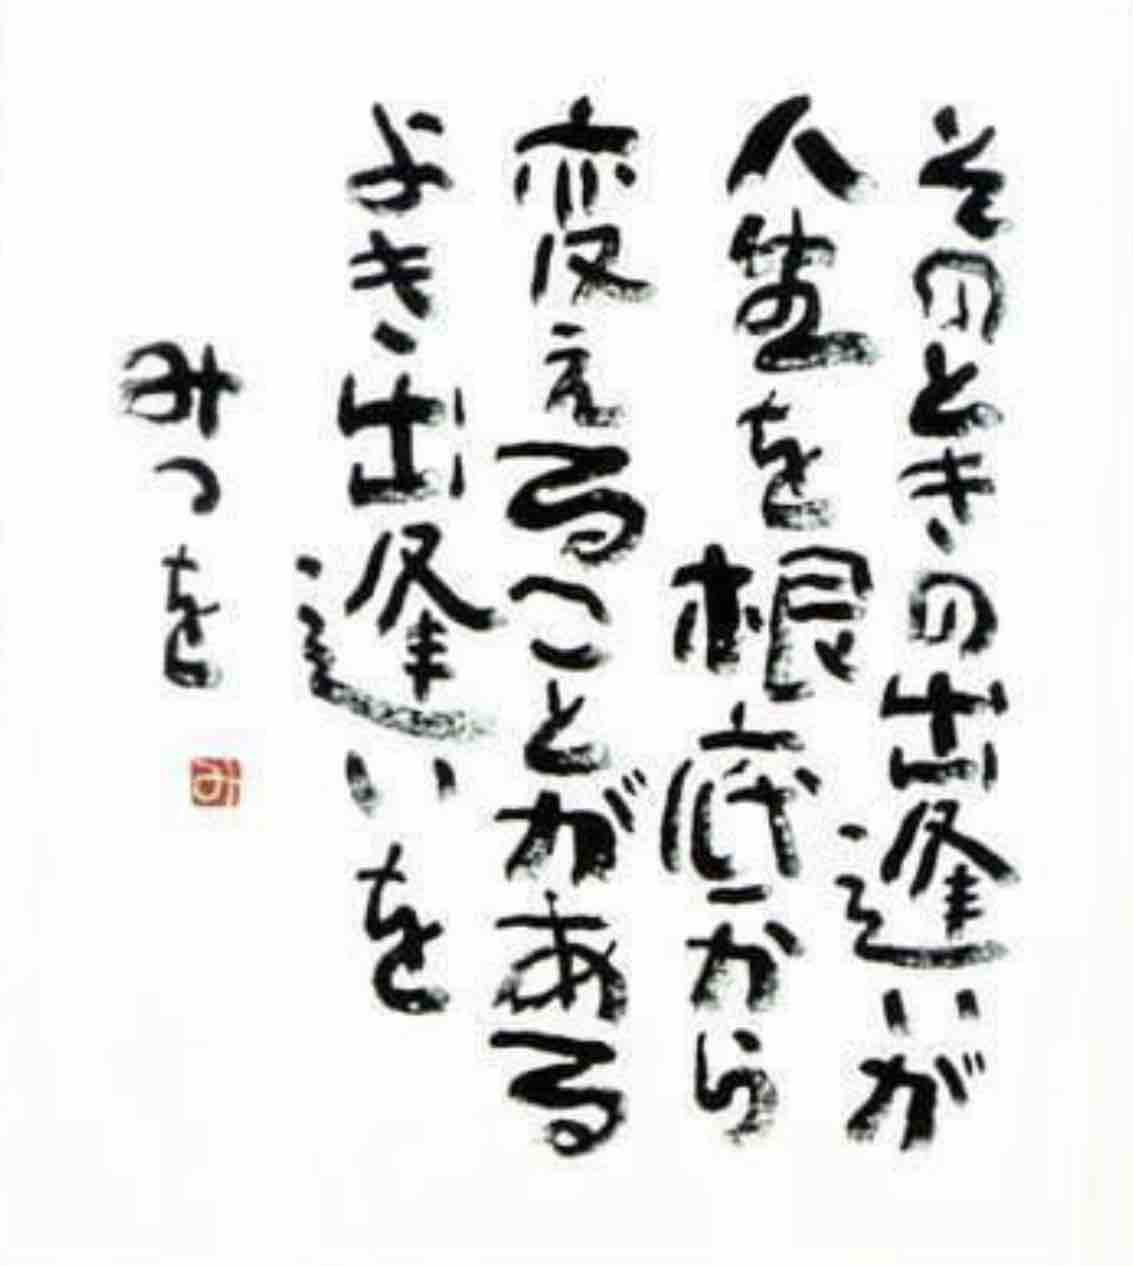 そのときの出逢いが
人生を根底から
変えることがある
よき出逢いを
みつを
み